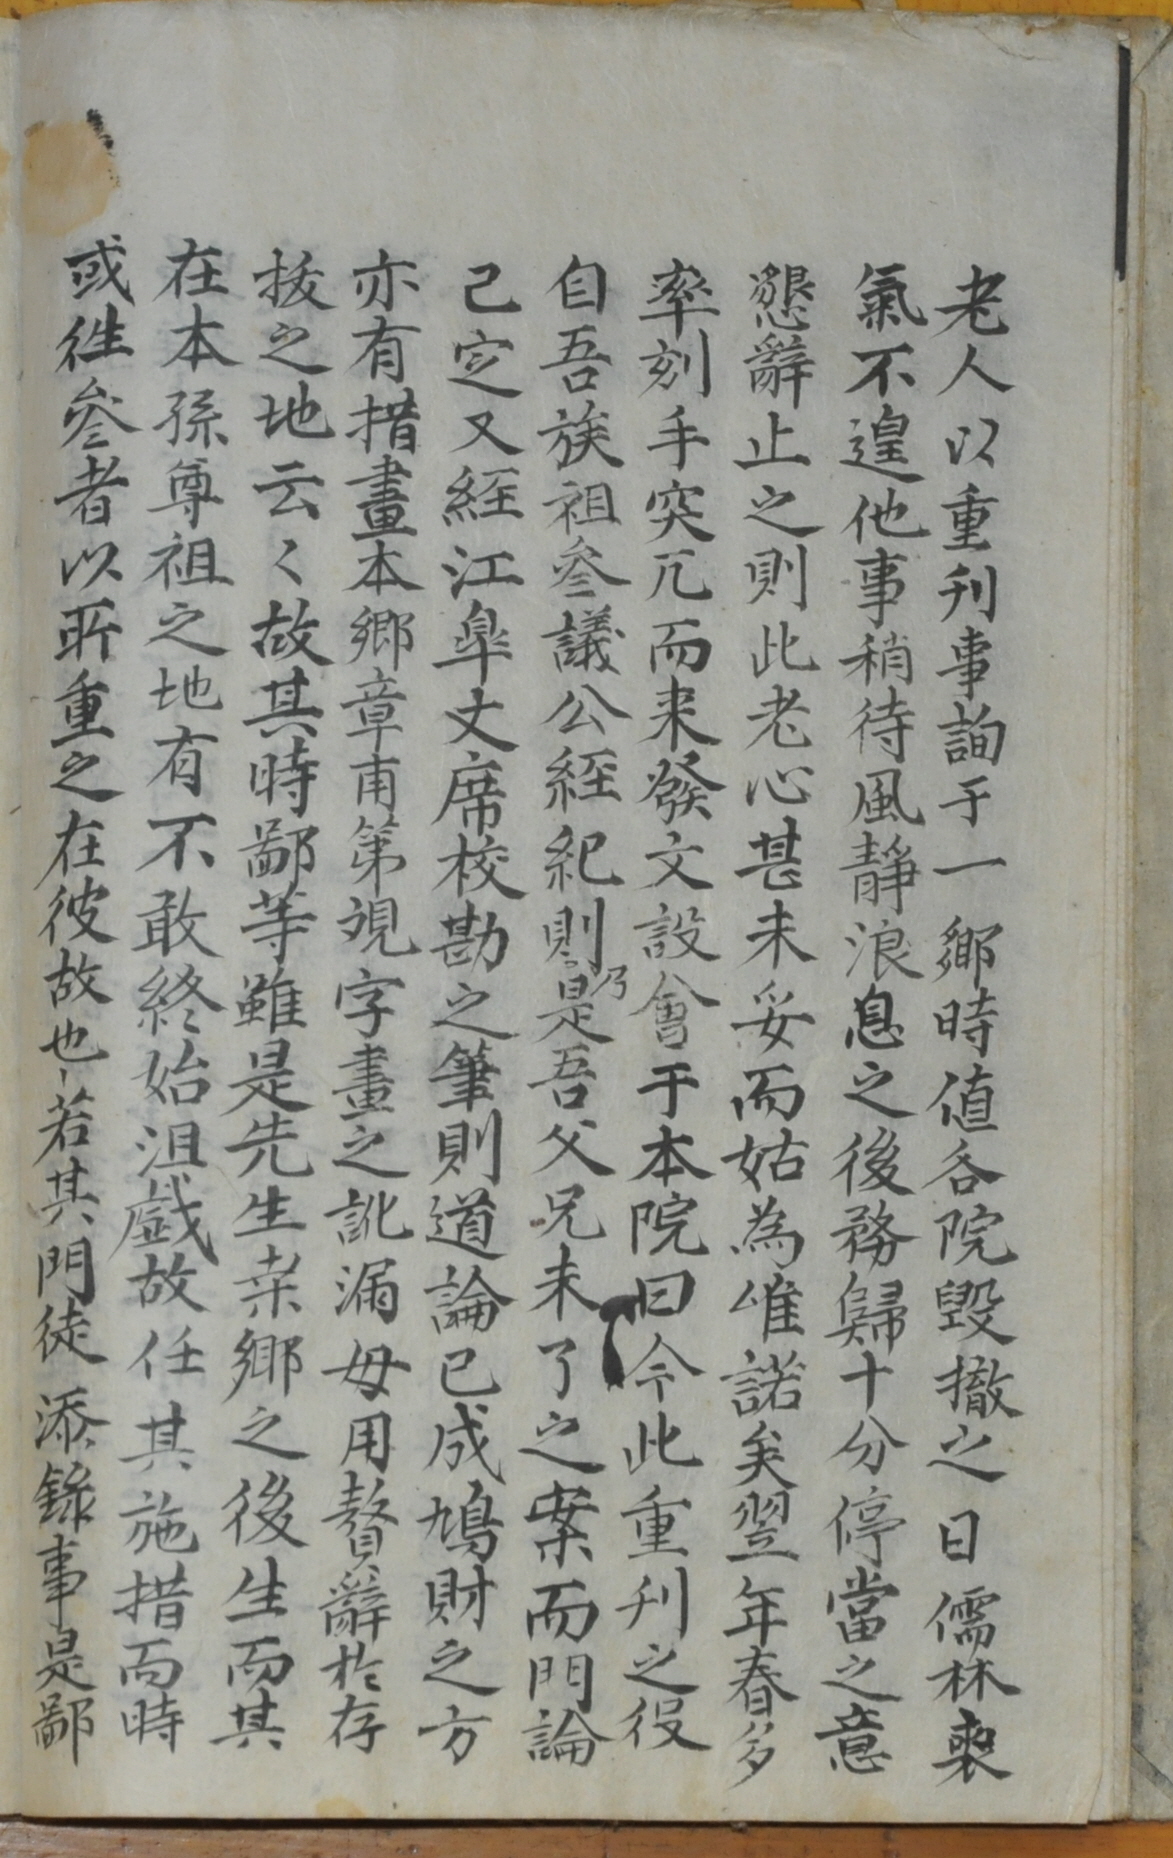 老人以重刊事詢于一鄕時値各院毁撤之日儒林喪
氣不遑他事稍待風靜浪息之後務歸十分停當之意
懇辭止之則此老心甚未妥而姑為唯諾矣翌年春多
率刻手突兀而来發文設會于本院曰今此重刊之役
自吾族祖叅議公經紀則乃是吾父兄未了之案而門論
已定又經江臯丈席校勘之筆則道論已成鳩財之方
亦有措畫本鄕章甫第覌字畫之訛漏毋用贅辭於存
拔之地云々故其時鄙等雖是先生桒鄕之後生而其
在本孫尊祖之地有不敢終始沮戲故任其施措而時
或徃叅者以所重之在彼故也若其門徒添錄事是鄙